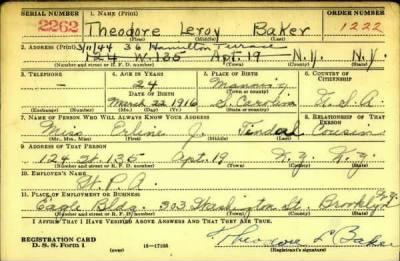 SERIAL NUMBER 1. NAME (Print) ORDER NUMBER
2262 Theodore Leroy Baker 1222
(First) (Middle) (Last)
2. ADDRESS (Print) 3/11/44 36 Hamilton Terrace
124 W. 135 Apt. 19 N.Y. N.Y.
(Number and street or R. F. D. number) (Town) (County) (State)
3. TELEPHONE 4. AGE IN YEARS 5. PLACE OF BIRTH 6. COUNTRY OF CITIZENSHIP
- 24 Manning
DATE OF BIRTH (Town or county)
March 22 1916 S. Carolina U.S.A.
(Exchange) (Number) (Mo.) (Day) (Yr.) (State or country)
7. NAME OF PERSON WHO WILL ALWAYS KNOW YOUR ADDRESS 8. RELATIONSHIP OF THAT PERSON
Miss J. Tindal Cousin
(Mr., Mrs., Miss) (First) (Middle) (Last)
9. ADDRESS OF THAT PERSON
124 135 Apt. 19 N.Y. N.Y.
(Number and street or R. F. D. number) (Town) (County) (State)
10. EMPLOYER'S NAME
W.P.A.
11. PLACE OF EMPLOYMENT OR BUSINESS
Eagle Bldg. 303 Washington St. Brooklyn N.Y.
(Number and street or R. F. D. number) (Town) (County) (State)
I AFFIRM THAT I HAVE VERIFIED ABOVE ANSWERS AND THAT THEY ARE TRUE.
REGISTRATION CARD
D. S. S. Form 1 (over) 16—17105 Theodore L Baker
(Registrant's signature)